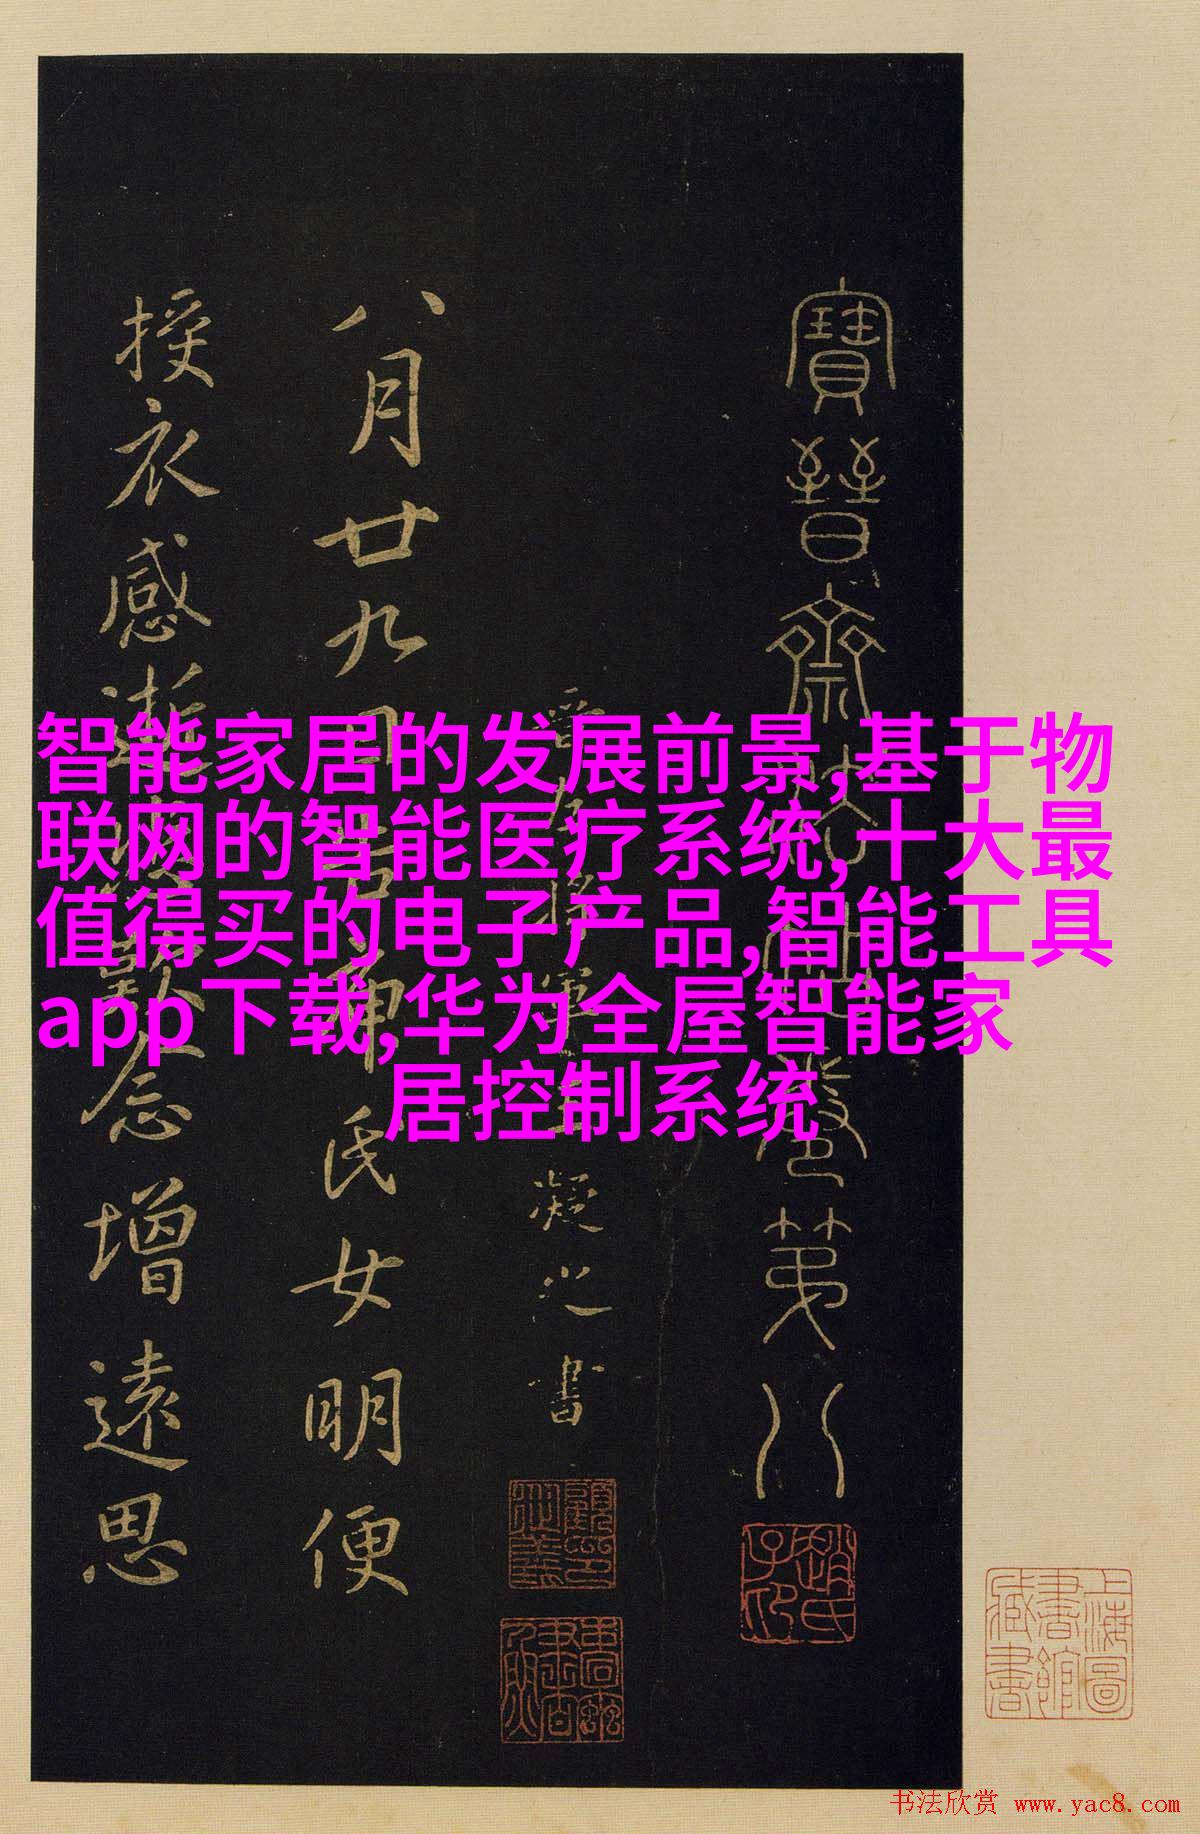 智能家居的发展前景,基于物
联网的智能医疗系统,十大最
值得买的电子产品,智能工具
app下载,华为全屋智能家
居控制系统
寶晉齋
第八
凝之書
八月廿九日
氏女明便
授衣感
念增遠思
趙氏子印
上海圖書館藏書
书法欣赏 www.yac8.com